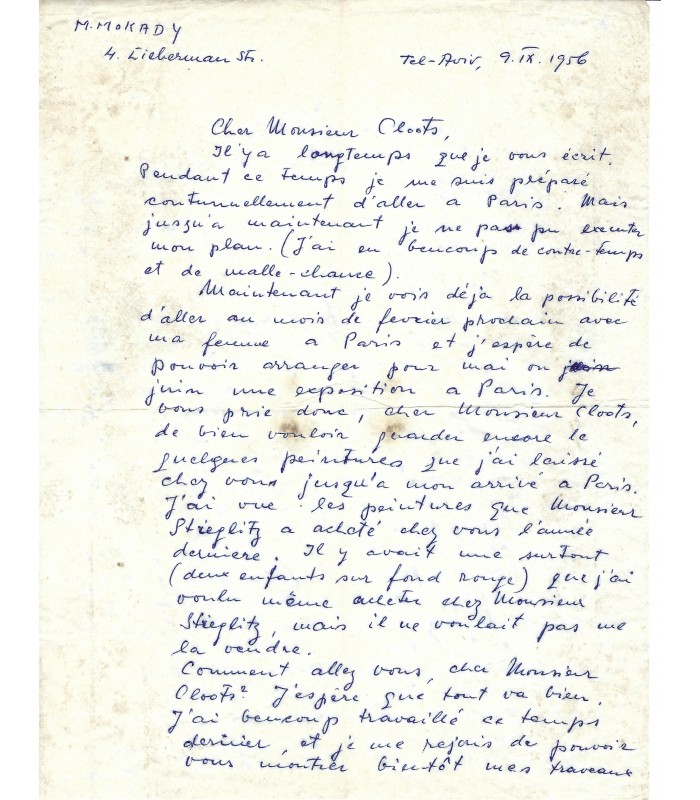 M. MOKADY
4. Lieberman Str.
Tel-Aviv, 9.IX.1956
Cher Monsieur Cloots,
Il y a longtemps que je vous écrit.
Pendant ce temps je me suis préparé
contunnellement d'aller a Paris. Mais
jusqu'a maintenant je ne pas pu executer
mon plan. (J'ai eu beucoups de contre-temps
et de malle-chance).
Maintenant je vois déja la possibilité
d'aller au mois de fevrier prochain avec
ma femme a Paris et j'espère de
pouvoir arranger pour mai ou juin
juin une exposition a Paris. Je
vous prie donc, cher Monsieur Cloots,
de bien vouloir guarder encore le
quelques peintures que j'ai laissé
chez vous jusqu'a mon arrivé a Paris.
J'ai vue les peintures que Monsieur
Stieglitz a acheté chez vous l'année
derniere. Il y avait une surtout
(deux enfants sur fond rouge) que j'ai
voulu même acheter chez Monsieur
Stieglitz, mais il ne voulait pas me
la vendre.
Comment allez vous, cher Monsieur
Cloots? J'espère que tout va bien.
J'ai beucoup travaillé ce temps
dernier, et je me rejois de pouvoir
vous montrer bientôt mes traveaux